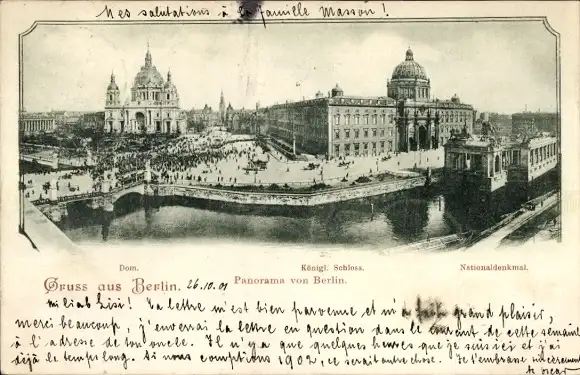 Mes salutations à la famille Masson!
Dom.
Königl. Schloss.
Nationaldenkmal.
Gruss aus Berlin. 26.10.01
Panorama von Berlin.
Lisi! Ta lettre m'est bien parvenue et m'a fait grand plaisir,
merci beaucoup, j'enverai la lettre en question dans le courant de cette semaine
à l'adresse de ton oncle. Il n'y a que quelques heures que je suis ici et j'ai
déjà le temps long. Si nous comptions 1902, ce serait autre chose. Je t'embrasse sincèrement
Oscar